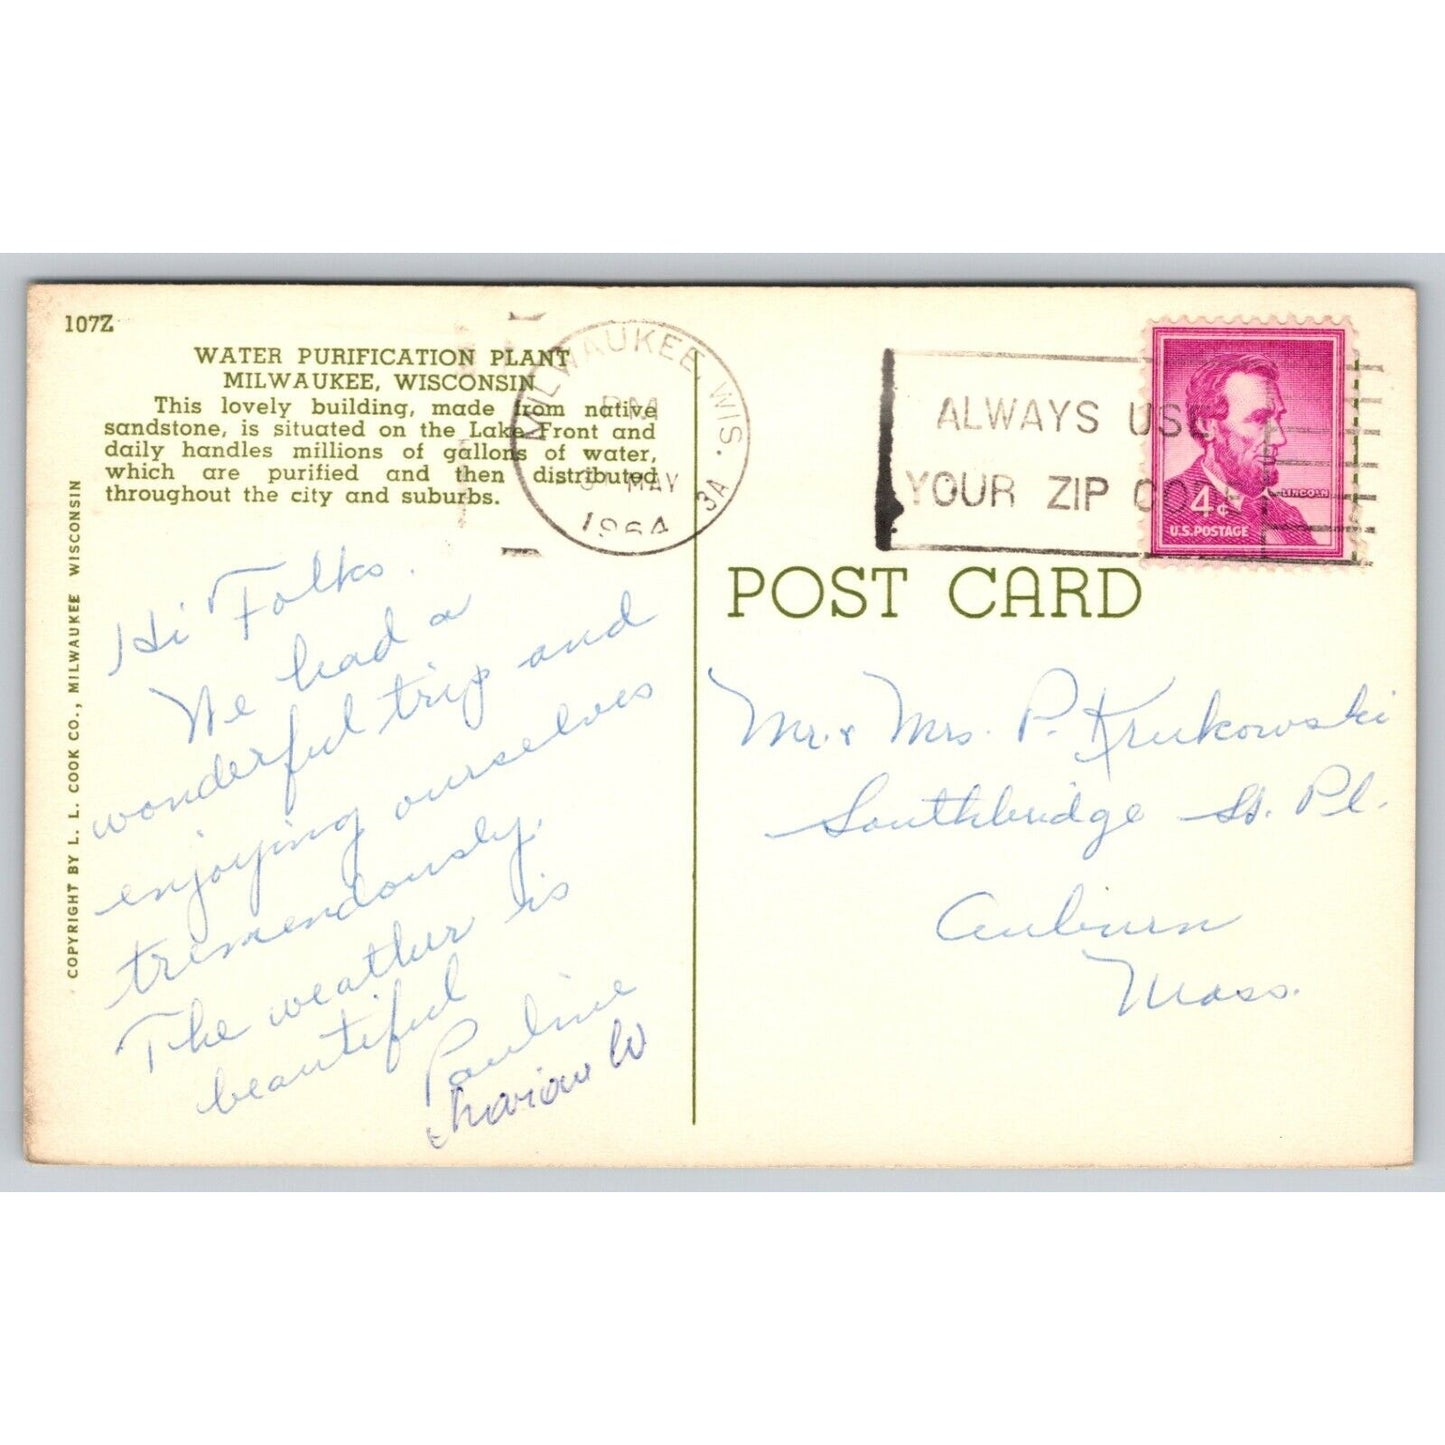 107Z
WATER PURIFICATION PLANT
MILWAUKEE, WISCONSIN
This lovely building, made from native
sandstone, is situated on the Lake Front and
daily handles millions of gallons of water,
which are purified and then distributed
throughout the city and suburbs.
COPYRIGHT BY L. L. COOK CO., MILWAUKEE WISCONSIN
Hi Folks.
We had a
wonderful trip and
enjoying ourselves
tremendously.
The weather is
beautiful
Pauline
Marion W
MILWAUKEE WIS.
PM
MAY
1964
3A
ALWAYS USE
YOUR ZIP CODE
4¢
LINCOLN
U.S. POSTAGE
POST CARD
Mr. & Mrs. P. Krukowski
Southbridge St. Pl.
Auburn
Mass.